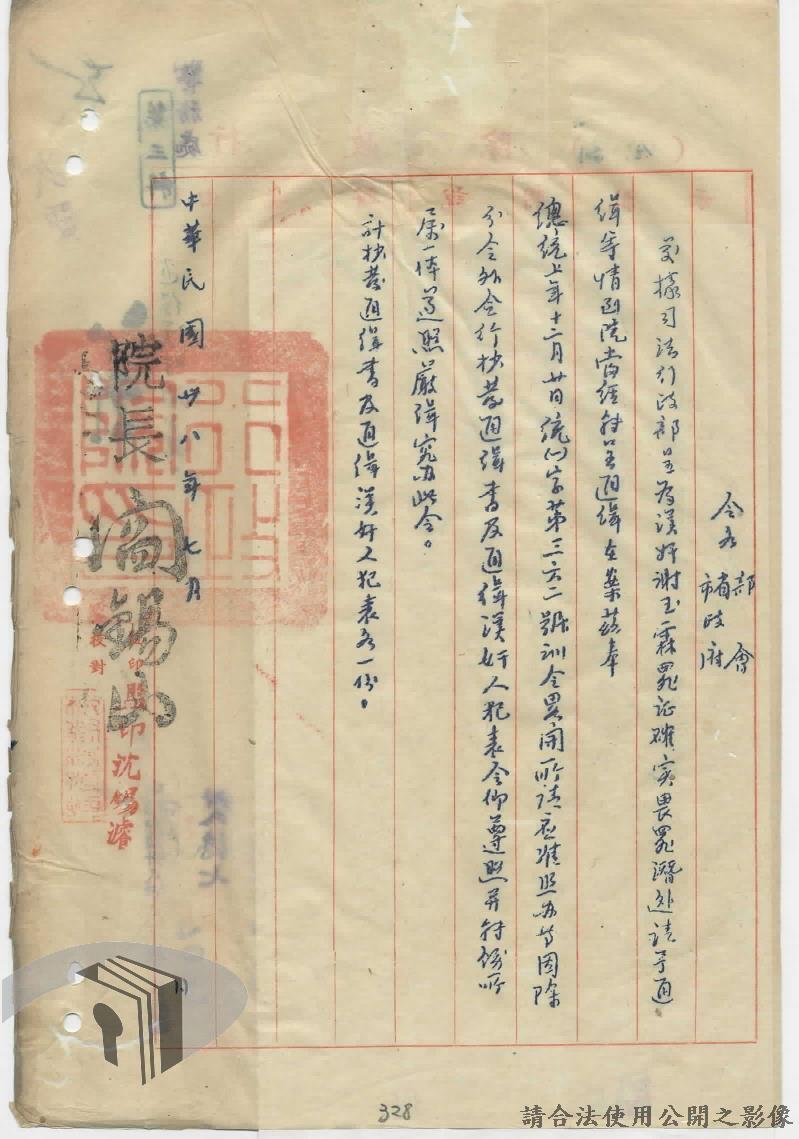 令各 部會
省市政府
案據司法行政部呈為漢奸謝玉霖罪証確實畏罪潛逃請予通
緝等情到院當經轉呈通緝在案茲奉
總統上年十二月廿日統(一)字第三六二號訓令異開所請應准照办等因除
分令外合行抄發通緝書及通緝漢奸人犯表令仰遵照并轉飭所
屬一体遵照嚴緝究办此令。
計抄發通緝書及通緝漢奸人犯表各一份。
中華民國卅八年七月 日
院長閻錫山
監印
校對
沈錫濬
警務處
第三科
328
請合法使用公開之影像